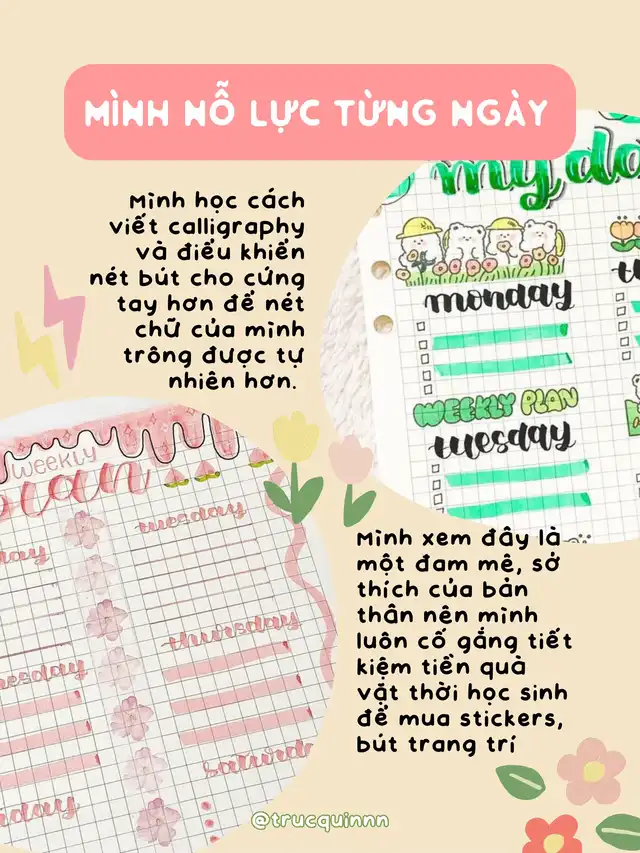 MÌNH NỖ LỰC TỪNG NGÀY
Mình học cách
viết calligraphy
và điều khiển
nét bút cho cứng
tay hơn để nét
chữ của mình
trông được tự
nhiên hơn.
my
monday
WEEKLY PLAN
tuesday
WEEKLY
plan
tuesday
thursday
saturday
Mình xem đây là
một đam mê, sở
thích của bản
thân nên mình
luôn cố gắng tiết
kiệm tiền quà
vặt thời học sinh
để mua stickers,
bút trang trí
@trucquinnn